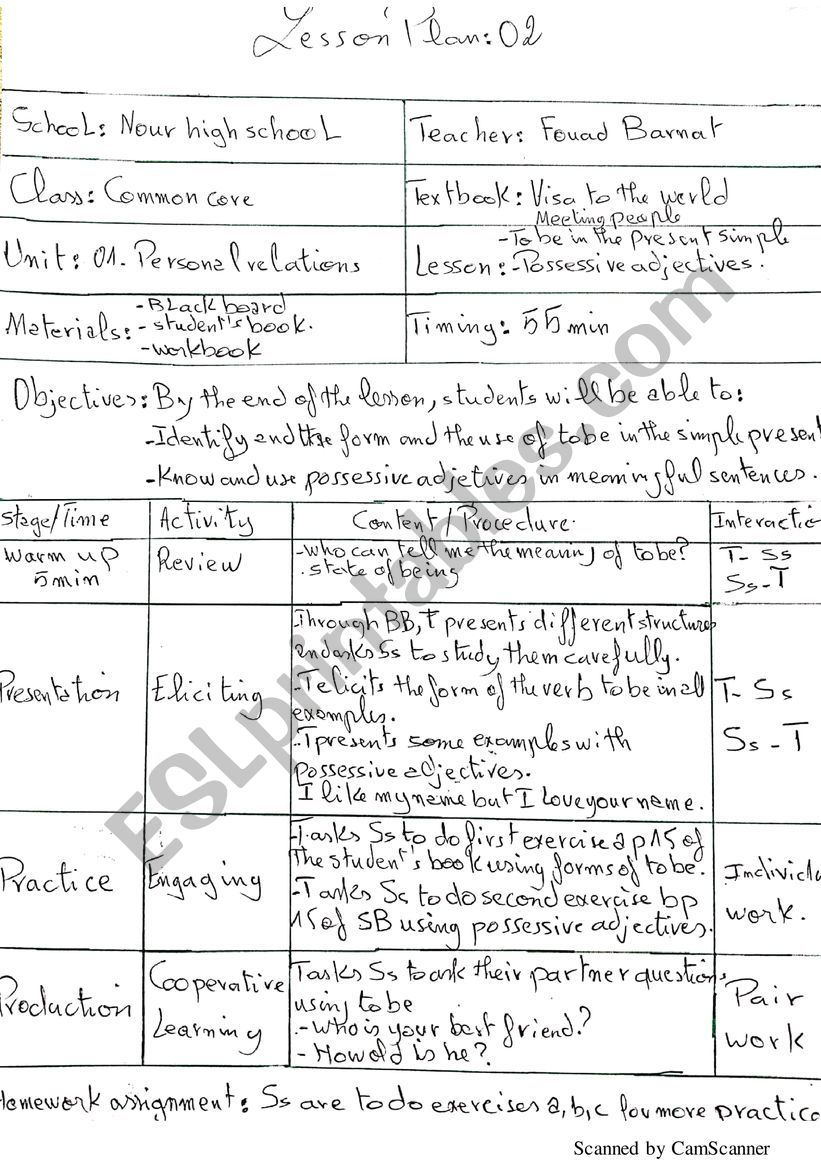 Lesson Plan: 02
School: Nour high school
Teacher: Fouad Barnat
Class: Common core
Textbook: Visa to the world
Unit: 01. Personal relations
Meeting people
- To be in the present simple
Lesson: - Possessive adjectives.
Materials: - Black board
- student's book.
- workbook
Timing: 55 min
Objectives: By the end of the lesson, students will be able to:
- Identify and the form and the use of to be in the simple present
- Know and use possessive adjetives in meaningful sentences.
Stage/Time
Activity
Content / Procedure
Interactio
Warm up
5min
Review
- who can tell me the meaning of to be?
. state of being
T - Ss
Ss - T
Presentation
Eliciting
Through BB, T presents different structures
and asks Ss to study them carefully.
- T elicits the form of the verb to be in all
examples.
- T presents some examples with
possessive adjectives.
I like my name but I love your name.
T - Ss
Ss - T
Practice
Engaging
- T asks Ss to do first exercise a p 15 of
the student's book using forms of to be.
- T asks Ss to do second exercise b p
15 of SB using possessive adjectives.
Individu
work.
Production
Cooperative
Learning
T asks Ss to ask their partner questions
using to be
- Who is your best friend?
- How old is he?
Pair
work
Homework assignment: Ss are to do exercises a, b, c for more practice
ESLprintables.com
Scanned by CamScanner